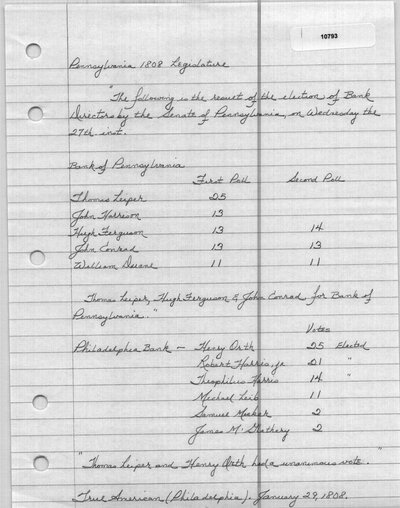 10793
Pennsylvania 1808 Legislature
"The following is the result of the election of Bank
Directors by the Senate of Pennsylvania, on Wednesday the
27th inst.
Bank of Pennsylvania
First Poll Second Poll
Thomas Leiper 25
John Harrison 13
Hugh Ferguson 13 14
John Conrad 13 13
William Duane 11 11
Thomas Leiper, Hugh Ferguson & John Conrad for Bank of
Pennsylvania."
Votes
Philadelphia Bank — Henry Orth 25 Elected
Robert Harris, jr 21 "
Theophilus Harris 14 "
Michael Leib 11
Samuel 2
James M. 2
"Thomas Leiper and Henry Orth had a unanimous vote. "
True American (Philadelphia). January 29, 1808.